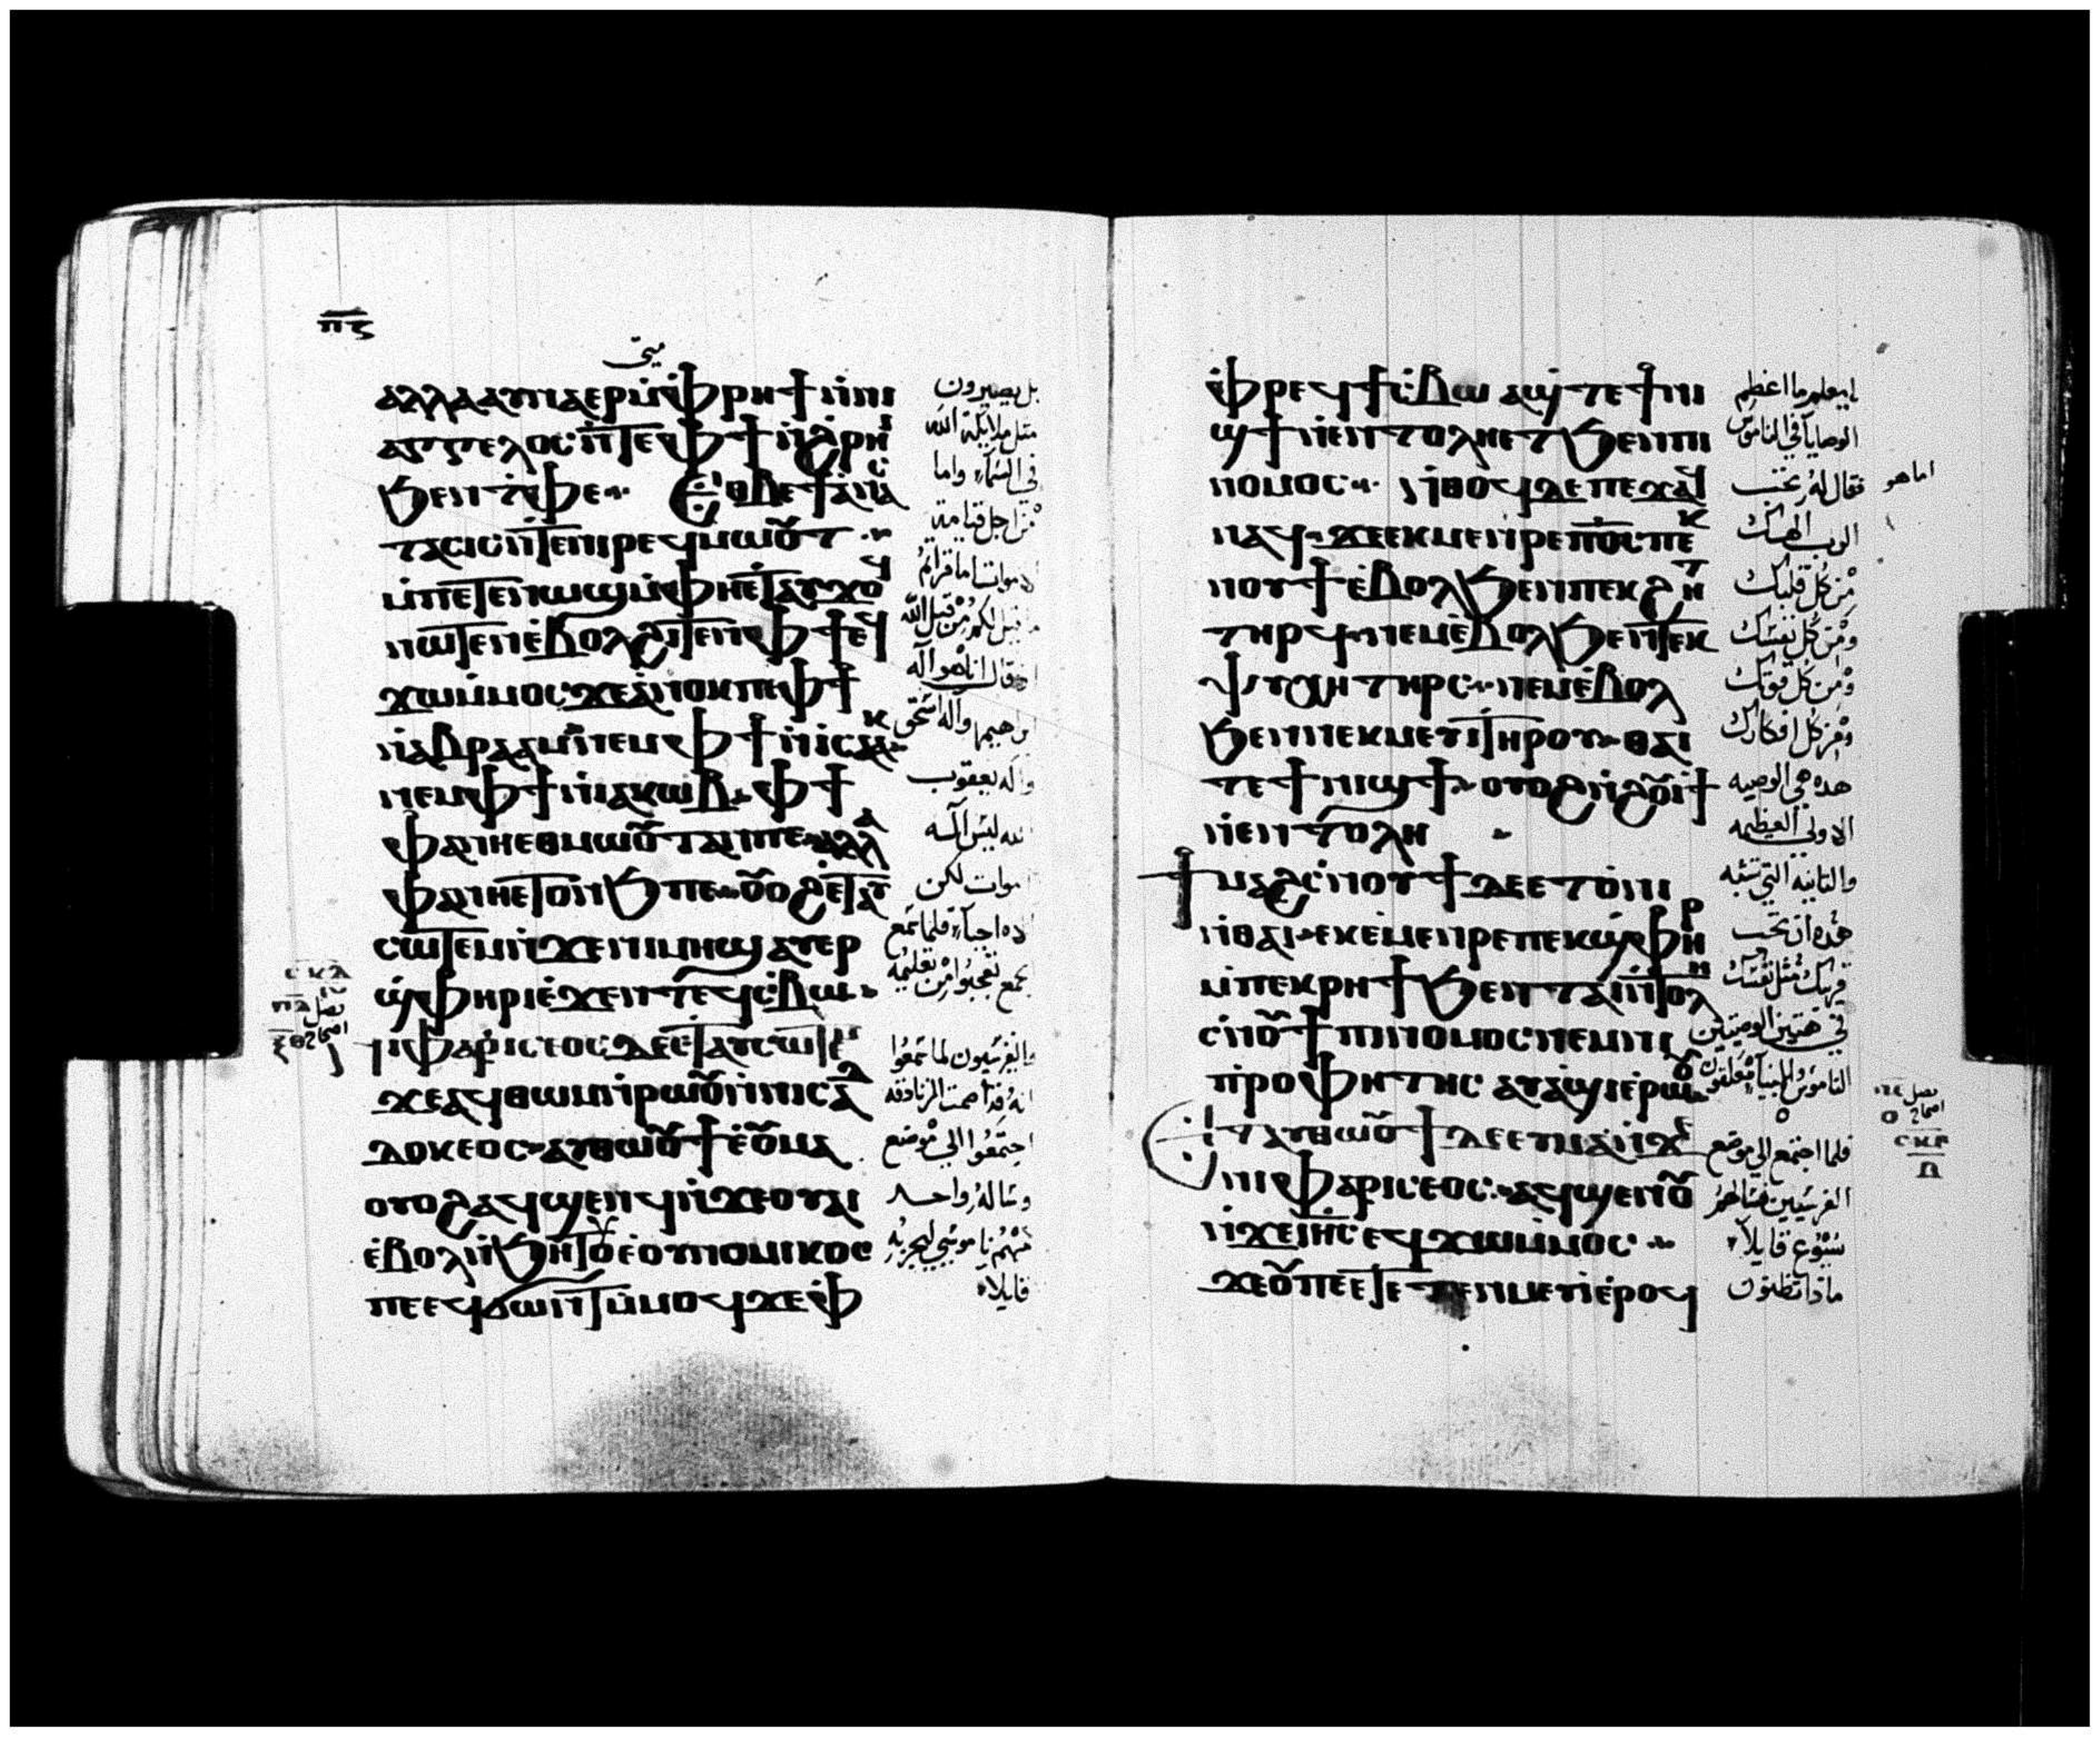 ⲡⲋ
متى
ⲁⲗⲗⲁ ⲁⲩⲛⲁⲉⲣⲙ̀ⲫⲣⲏϯ ⲛ̀ⲛⲓ
ⲁⲅⲅⲉⲗⲟⲥ ⲛ̀ⲧⲉ ⲫϯ ⲛ̀ϩⲣⲏⲓ
ϧⲉⲛ ⲧ̀ⲫⲉ ⲉⲑⲃⲉ ϯⲁⲛⲁ
ⲥⲧⲁⲥⲓⲥ ⲛ̀ⲧⲉ ⲛⲓⲣⲉϥⲙⲱⲟⲩⲧ
ⲙ̀ⲡⲉⲧⲉⲛⲱϣ ⲙ̀ⲫⲏ ⲉ̀ⲧⲁⲩϫⲟϥ
ⲛⲱⲧⲉⲛ ⲉ̀ⲃⲟⲗϩⲓⲧⲉⲛ ⲫϯ ⲉϥ
ϫⲱ ⲙ̀ⲙⲟⲥ ϫⲉ ⲁ̀ⲛⲟⲕ ⲡⲉ ⲫϯ
ⲛ̀ⲁⲃⲣⲁⲁⲙ ⲛⲉⲙ ⲫϯ ⲛ̀ⲓⲥⲁⲁⲕ
ⲛⲉⲙ ⲫϯ ⲛ̀ⲓⲁⲕⲱⲃ ⲫϯ
ⲫⲁ ⲛⲏⲉⲑⲙⲱⲟⲩⲧ ⲁⲛ ⲡⲉ ⲁⲗⲗⲁ
ⲫⲁ ⲛⲏⲉⲧⲟⲛϧ ⲡⲉ ⲟⲩⲟϩ ⲉ̀ⲧⲁⲩ
ⲥⲱⲧⲉⲙ ⲛ̀ϫⲉ ⲛⲓⲙⲏϣ ⲁⲩⲉⲣ
ϣ̀ⲫⲏⲣⲓ ⲉ̀ϫⲉⲛ ⲧⲉϥⲥ̀ⲃⲱ
ⲛⲓⲫⲁⲣⲓⲥⲉⲟⲥ ⲇⲉ ⲉ̀ⲧⲁⲩⲥⲱⲧⲉⲙ
ϫⲉ ⲁϥⲑⲱⲙ ⲛ̀ⲣⲱⲟⲩ ⲛ̀ⲛⲓⲥⲁⲇ
ⲇⲟⲕⲉⲟⲥ ⲁⲩⲑⲱⲟⲩϯ ⲉ̀ⲟⲩⲙⲁ
ⲟⲩⲟϩ ⲁϥϣⲉⲛϥ ⲛ̀ϫⲉ ⲟⲩⲁⲓ
ⲉ̀ⲃⲟⲗ ⲛ̀ϧⲏⲧⲟⲩ ⲉ̀ⲟⲩⲛⲟⲙⲓⲕⲟⲥ
ⲡⲉ ⲉϥϭⲱⲛⲧ ⲙ̀ⲙⲟϥ ϫⲉ ⲫ̀
بل يصيرون
مثل ملايكة الله
في السماء واما
من اجل قيامة
الاموات اما قراتم
ما قيل لكم من قبل الله
اذ قال انا هو اله
ابراهيم واله اسحق
واله يعقوب
الله ليس اله
اموات لكن
اله احياء فلما سمع
الجمع تعجبوا من تعليمه
والفريسيون لما سمعوا
انه قد اصمت الزنادقه
اجتمعوا الي موضع
وساله واحد
منهم ناموسي ليجربه
قايلا
ⲥⲕⲁ
ⲫ̀ⲣⲉϥϯⲥ̀ⲃⲱ ⲁϣ ⲧⲉ ϯⲛⲓ
ϣϯ ⲛ̀ⲉⲛⲧⲟⲗⲏ ⲉⲧϧⲉⲛ ⲡⲓ
ⲛⲟⲙⲟⲥ ⲛ̀ⲑⲟϥ ⲇⲉ ⲡⲉϫⲁϥ
ⲛⲁϥ ϫⲉ ⲉⲕⲙⲉⲛⲣⲉ ⲡⲟⲥ ⲡⲉⲕ
ⲛⲟⲩϯ ⲉ̀ⲃⲟⲗϧⲉⲛ ⲡⲉⲕϩⲏⲧ
ⲧⲏⲣϥ ⲛⲉⲙ ⲉ̀ⲃⲟⲗϧⲉⲛ ⲧⲉⲕ
ⲯⲩⲭⲏ ⲧⲏⲣⲥ ⲛⲉⲙ ⲉ̀ⲃⲟⲗ
ϧⲉⲛ ⲛⲉⲕⲙⲉⲩⲓ ⲧⲏⲣⲟⲩ ⲑⲁⲓ
ⲧⲉ ϯⲛⲓϣϯ ⲟⲩⲟϩ ⲛ̀ϩⲟⲩⲓϯ
ⲛ̀ⲉⲛⲧⲟⲗⲏ
ϯⲙⲁϩⲥ̀ⲛⲟⲩϯ ⲇⲉ ⲉⲧⲟ̀ⲛⲓ
ⲛ̀ⲑⲁⲓ ⲉⲕⲉ̀ⲙⲉⲛⲣⲉ ⲡⲉⲕϣ̀ⲫⲏⲣ
ⲙ̀ⲡⲉⲕⲣⲏϯ ϧⲉⲛ ⲧⲁⲓⲉⲛⲧⲟⲗⲏ
ⲥ̀ⲛⲟⲩϯ ⲡⲓⲛⲟⲙⲟⲥ ⲛⲉⲙ ⲛⲓ
ⲡ̀ⲣⲟⲫⲏⲧⲏⲥ ⲁⲩⲁ̀ϣⲓ ⲉ̀ⲣⲱⲟⲩ
ⲉⲧⲁⲩⲑⲱⲟⲩϯ ⲇⲉ ⲉⲩⲙⲁ ⲛ̀ϫⲉ
ⲛⲓⲫⲁⲣⲓⲥⲉⲟⲥ ⲁϥϣⲉⲛⲟⲩ
ⲛ̀ϫⲉ ⲓⲏⲥ ⲉϥϫⲱ ⲙ̀ⲙⲟⲥ
ϫⲉ ⲟⲩ ⲡⲉⲧⲉⲧⲉⲛⲙⲉⲩⲓ ⲉ̀ⲣⲟϥ
يامعلم ما اعظم
الوصايا في الناموس
فقال له تحب
اما هو
الرب الهك
من كل قلبك
ومن كل نفسك
ومن كل قوتك
ومن كل افكارك
هذه هي الوصيه
الاولى العظيمه
والثانيه التي تشبه
هذه ان تحب
قريبك مثل نفسك
في هتين الوصيتين
الناموس والانبيا معلقون
فلما اجتمع الي موضع
الفريسيين فسالهم
يسوع قايلا
ماذا تظنون
ⲥⲕⲃ